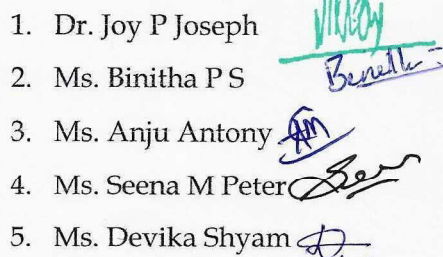 1. Dr. Joy P Joseph
2. Ms. Binitha P S
3. Ms. Anju Antony
4. Ms. Seena M Peter
5. Ms. Devika Shyam